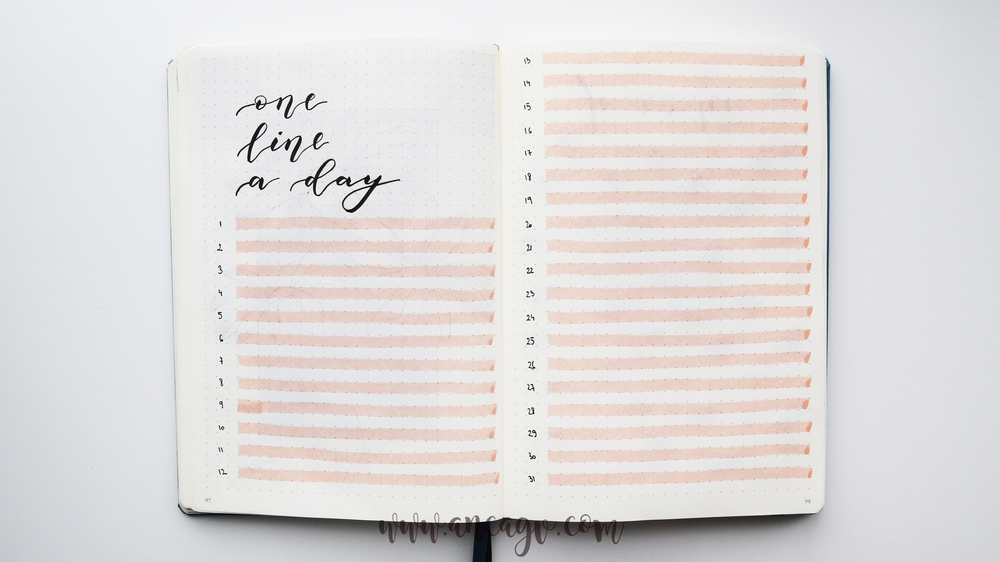 one
line
a day
1
2
3
4
5
6
7
8
9
10
11
12
97
13
14
15
16
17
18
19
20
21
22
23
24
25
26
27
28
29
30
31
98
www.ancagv.com